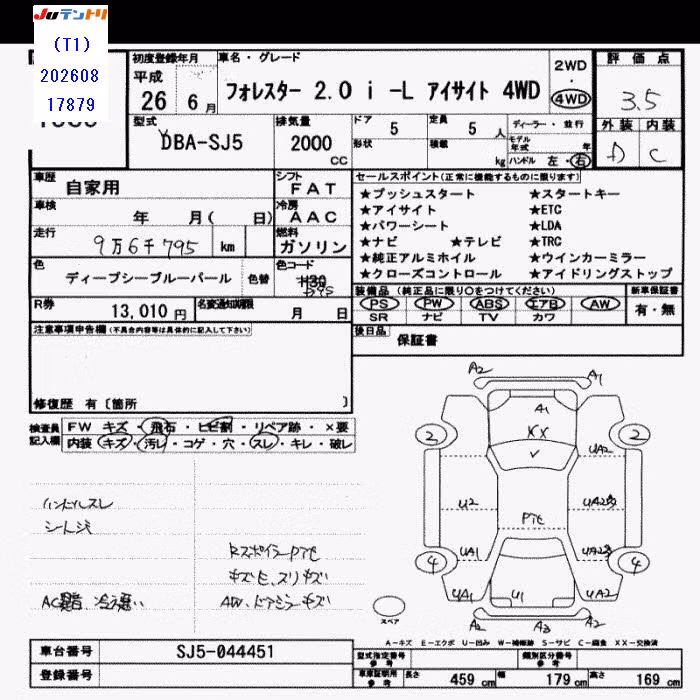 JUテントリ
(T1)
202608
17879
初度登録年月
平成
26 6月
車名・グレード
フォレスター 2.0 i -L アイサイト 4WD
2WD
・
4WD
評価点
3.5
外装 内装
D C
型式
DBA-SJ5
排気量
2000
CC
ドア 5
形状
定員 5 人
積載 kg
ディーラー・並行
モデル年式 年
ハンドル 左・右
車歴
自家用
シフト
FAT
車検 年 月( 日)
冷房
AAC
走行
9万6千795 km
燃料
ガソリン
色
ディープシーブルーパール
色替
色コード
H30
R券
13,010 円
名変通知期限
月 日
セールスポイント(正常に機能するものに限ります)
★プッシュスタート ★スタートキー
★アイサイト ★ETC
★パワーシート ★LDA
★ナビ ★テレビ ★TRC
★純正アルミホイル ★ウインカーミラー
★クローズコントロール ★アイドリングストップ
装備品(純正品に限り○をつけてください)
PS PW ABS エアB AW
SR ナビ TV カワ
新車保証書
有・無
後日品
保証書
注意事項申告欄(不具合内容等は具体的に記入して下さい)
修復歴 有〔箇所 〕
検査員記入欄
FW キズ・飛石・ヒビ割・リペア跡・×要
内装 キズ・汚レ・コゲ・穴・スレ・キレ・破レ
ハンドルスレ
AW、ドアミラーキズ
A2 A1
A1
XX
2 2
UA2
U2
UA1
4 4
UA1 U1 UA2
A2 A3 A2
スペア
A−キズ E−エクボ U−凹み W−補修跡 S−サビ C−腐食 XX−交換済
車台番号
SJ5-044451
登録番号
型式指定番号
参考
類別区分番号
参考
車庫証明用
参考
長さ 459 cm 幅 179 cm 高さ 169 cm